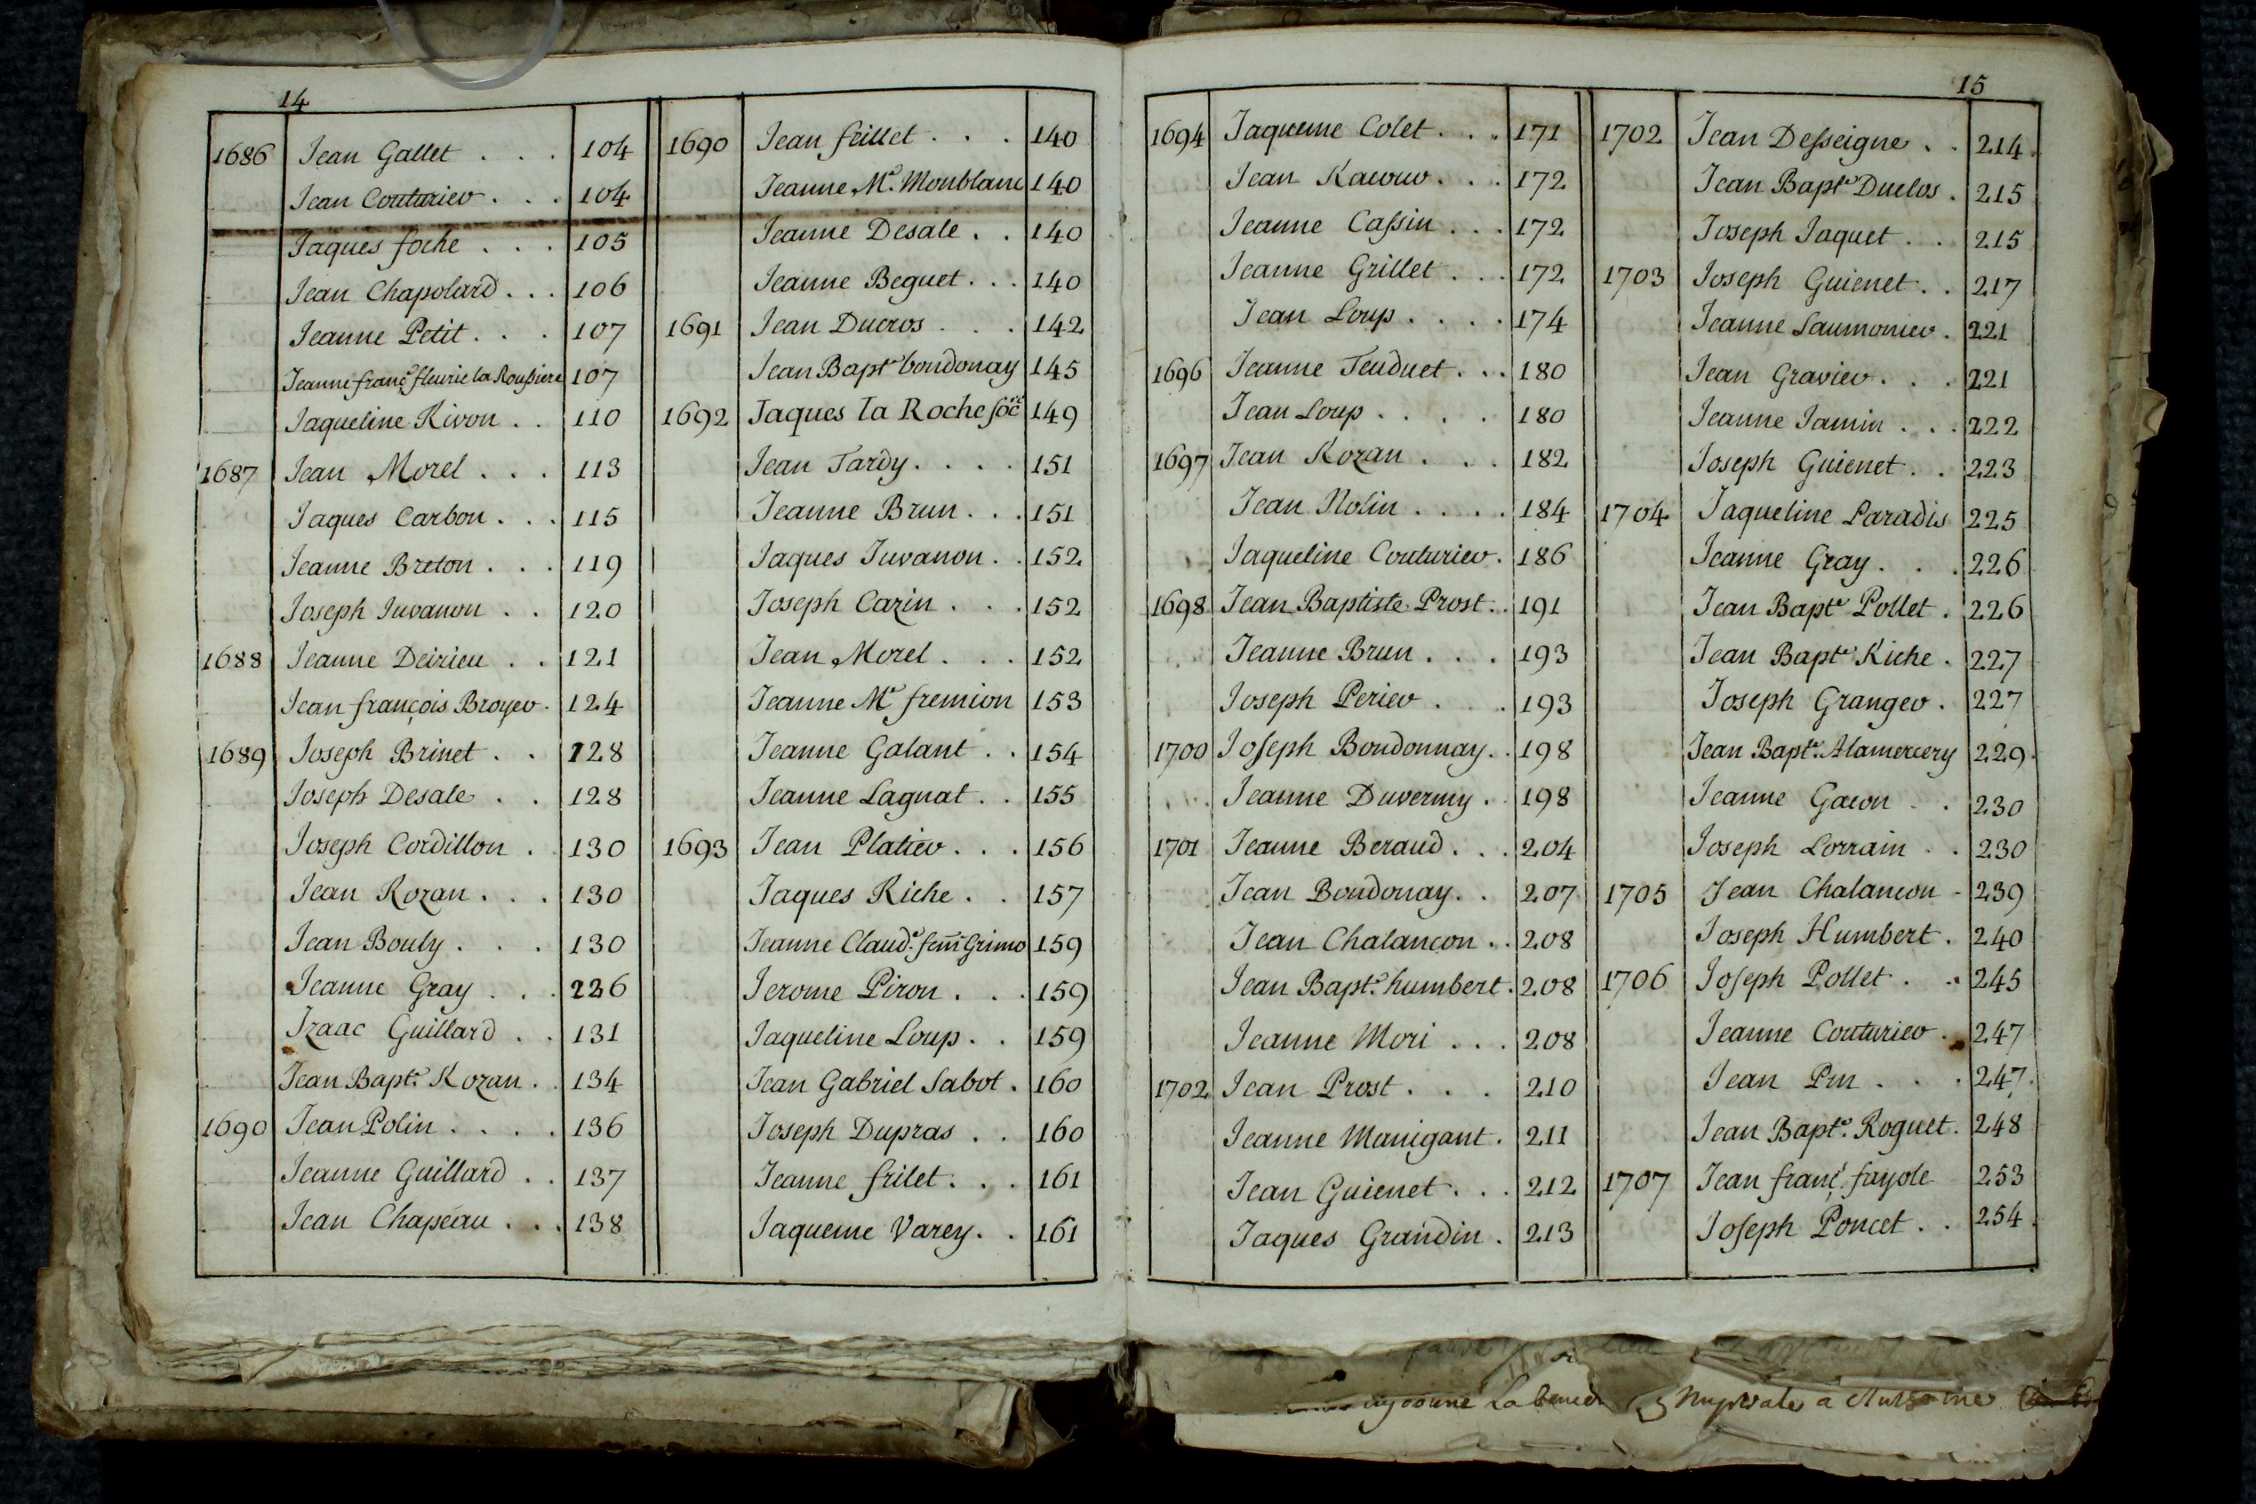 14
1686 Jean Gallet . . . 104
Jean Couturier . . . 104
Jaques foche . . . 105
Jean Chapolard . . . 106
Jeanne Petit . . . 107
Jeanne franç.e fleurie la Roussiere 107
Jaqueline Rivon . . 110
1687 Jean Morel . . . 113
Jaques Carbon . . . 115
Jeanne Breton . . . 119
Joseph Juvanon . . 120
1688 Jeanne Deirieu . . 121
Jean françois Broyer . 124
1689 Joseph Brinet . . 128
Joseph Desale . . 128
Joseph Cordillon . 130
Jean Rozan . . . 130
Jean Bouly . . . 130
Jeanne Gray . . . 226
Izaac Guillard . . 131
Jean Bapt.e Rozan . . 134
1690 Jean Polin . . . . 136
Jeanne Guillard . . 137
Jean Chapeau . . . 138
1690 Jean frillet . . . 140
Jeanne M.e Monblanc 140
Jeanne Desale . . 140
Jeanne Beguet . . . 140
1691 Jean Ducros . . . 142
Jean Bapt.e boudonay 145
1692 Jaques la Roche 149
Jean Tardy . . . . 151
Jeanne Brun . . . 151
Jaques Juvanon . . 152
Joseph Carin . . . 152
Jean Morel . . . 152
Jeanne M.e fremion 153
Jeanne Galant . . 154
Jeanne Lagnat . . 155
1693 Jean Platier . . . 156
Jaques Riche . . 157
Jeanne Claud.e Grimo 159
Jerome Piron . . . 159
Jaqueline Loup . . 159
Jean Gabriel Sabot . 160
Joseph Dupras . . 160
Jeanne frilet . . . 161
Jaqueme Varey . . 161
15
1694 Jaqueme Colet . . . 171
Jean . . . 172
Jeanne Cassin . . . 172
Jeanne Grillet . . . 172
Jean Loup . . . . 174
1696 Jeanne Tenduet . . . 180
Jean Loup . . . . 180
1697 Jean Rozan . . . 182
Jean Nolin . . . . 184
Jaqueline Couturier . 186
1698 Jean Baptiste Prost . . 191
Jeanne Brun . . . 193
Joseph Perier . . . 193
1700 Joseph Boudonnay . . 198
Jeanne Duverny . . 198
1701 Jeanne Beraud . . . 204
Jean Boudonay . . 207
Jean Chalancon . . 208
Jean Bapt.e humbert . 208
Jeanne Mori . . . 208
1702 Jean Prost . . . 210
Jeanne Manigant . 211
Jean Guienet . . . 212
Jaques Grandin . 213
1702 Jean Desseigne . . 214
Jean Bapt.e Duclos . 215
Joseph Jaquet . . 215
1703 Joseph Guienet . . 217
Jeanne Saumonier . 221
Jean Gravier . . . 221
Jeanne Jamin . . . 222
Joseph Guienet . . 223
1704 Jaqueline Paradis 225
Jeanne Gray . . . 226
Jean Bapt.e Pollet . 226
Jean Bapt.e Riche . 227
Joseph Granger . 227
Jean Bapt.e Alamercery 229
Jeanne Gacon . . 230
Joseph Lorrain . . 230
1705 Jean Chalancon - 239
Joseph Humbert . 240
1706 Joseph Pollet . . 245
Jeanne Couturier . 247
Jean Pin . . . 247
Jean Bapt.e Roguet . 248
1707 Jean franç. fayole 253
Joseph Poncet . . 254